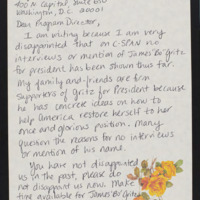 400 N. Capitol, Suite 650
Washington, D.C. 20001
Dear Program Director,
I am writing because I am very
disappointed that on C-SPAN no
interviews or mention of James "Bo" Gritz
for president has been shown thus far.
My family and friends are firm
supporters of Gritz for President because
he has concrete ideas on how to
help America restore herself to her
once and glorious position. Many
question the reasons for no interviews
or mention of his name.
You have not disappointed
us in the past, please do
not disappoint us now. Make
time available for James "Bo" Gritz